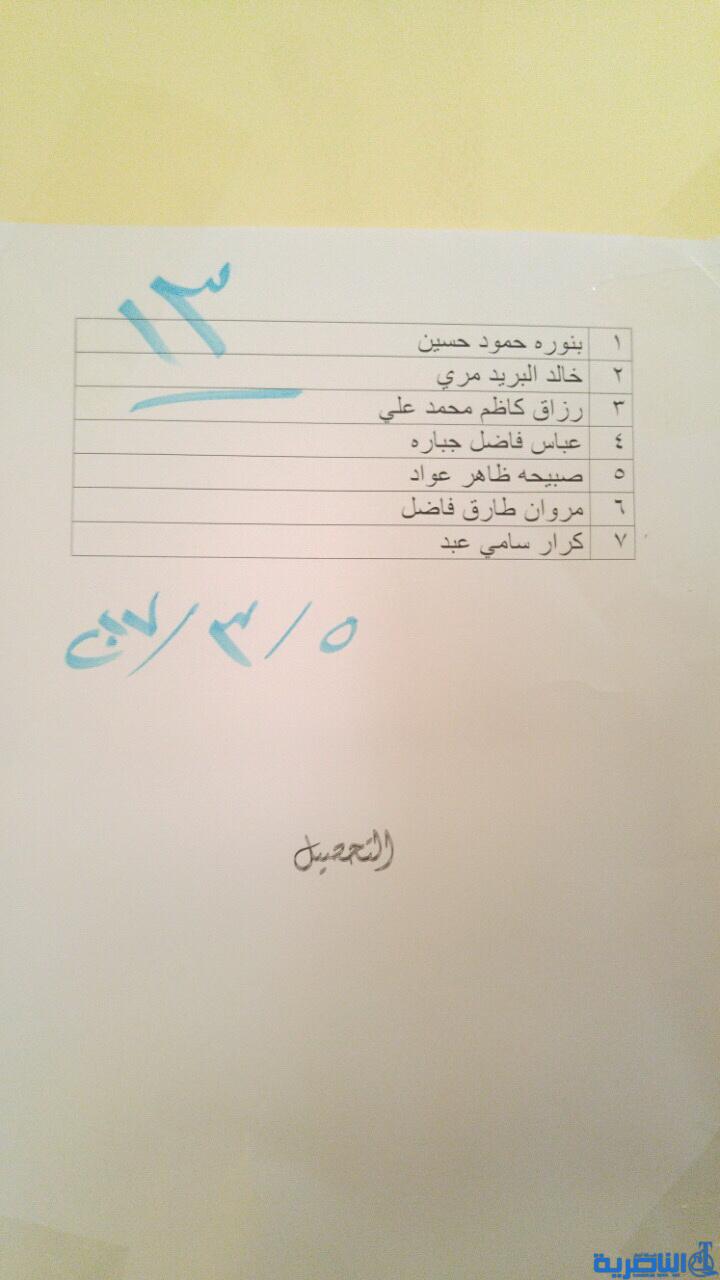 ١٣
١ بنوره حمود حسين
٢ خالد البريد مري
٣ رزاق كاظم محمد علي
٤ عباس فاضل جباره
٥ صبيحه ظاهر عواد
٦ مروان طارق فاضل
٧ كرار سامي عبد
٥ / ٣ / ٢٠١٧
التحصيل
الناصرية